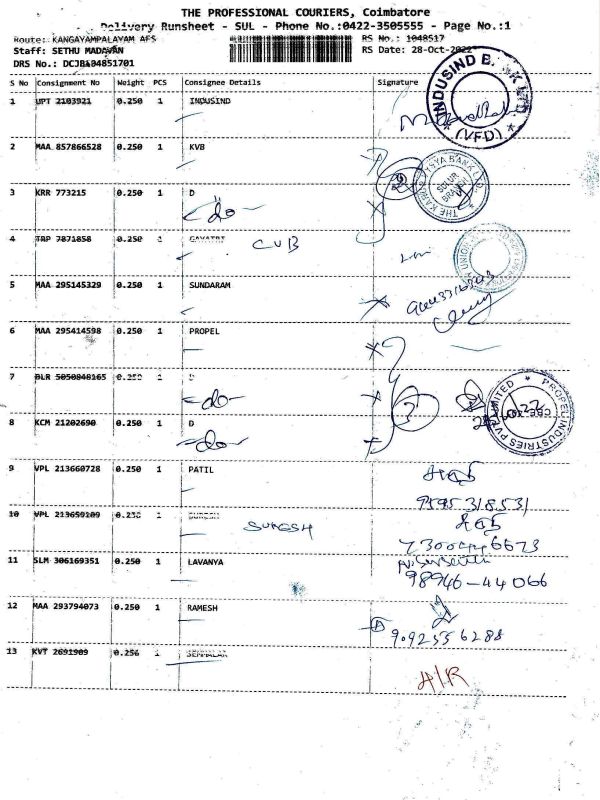 THE PROFESSIONAL COURIERS, Coimbatore
Delivery Runsheet - SUL - Phone No.:0422-3505555 - Page No.:1
Route: KANGAYAMPALAYAM AFS
RS No.: 1048517
Staff: SETHU MADAVAN
RS Date: 28-Oct-2022
DRS No.: DCJB104851701
S No Consignment No Weight PCS Consignee Details Signature
1 UPT 2103921 0.250 1 INDUSIND
INDUSIND BANK LTD. (VFD)
2 MAA 857866528 0.250 1 KVB
THE KARUR VYSYA BANK LTD. SULUR BRANCH
3 KRR 773215 0.250 1 D
do
4 TRP 7871858 0.250 1 GAYATRI CUB
5 MAA 295145329 0.250 1 SUNDARAM
6 MAA 295414598 0.250 1 PROPEL
7 BLR 5050848165 0.250 1 D
do
PROPEL INDUSTRIES PVT LIMITED
8 KCM 21202690 0.250 1 D
do
9 VPL 213660728 0.250 1 PATIL
9595318531
10 VPL 213659109 0.250 1 SURESH SURESH
11 SLM 306169351 0.250 1 LAVANYA
98946-44066
12 MAA 293794073 0.250 1 RAMESH
9092556288
13 KVT 2691909 0.250 1